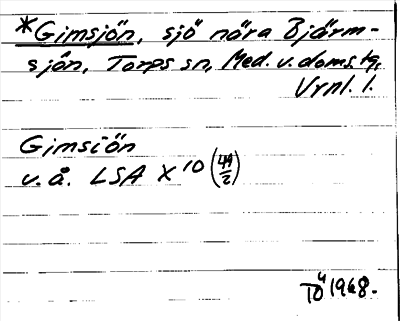 *Gimsjön, sjö nära Bjärm-
sjön, Torps sn, Med. v. doms.tg,
Vrnl. l.
Gimsiön
v. å. LSA X 10 (49/2)
TÖ 1968.